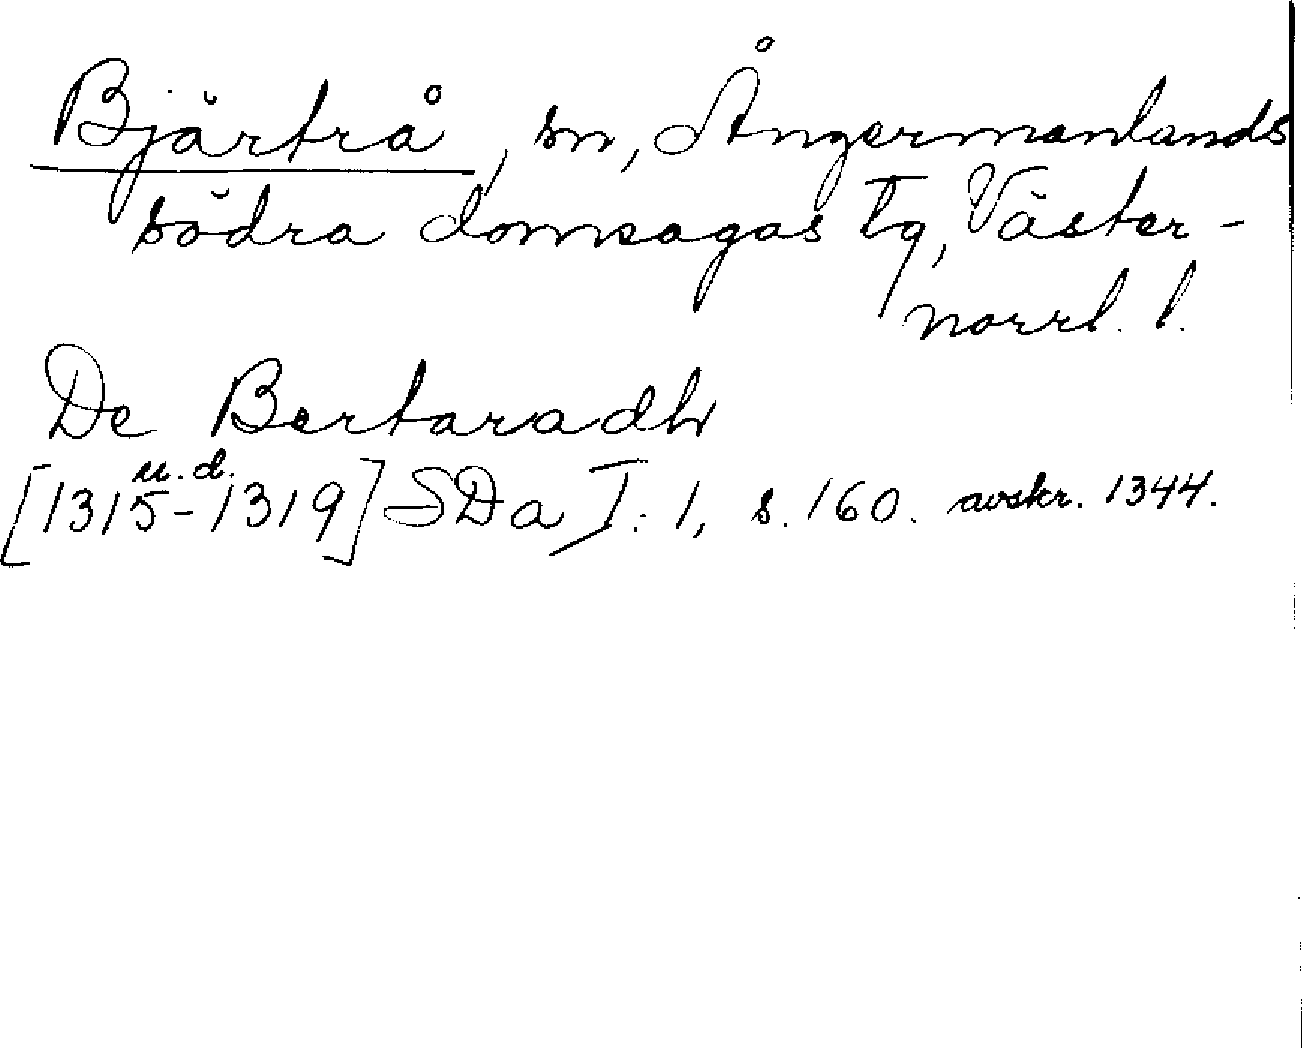 Bjärtrå, sn, Ångermanlands
södra domsagas tg, Väster-
norrl. l.
De Bertaradh
u.d.
[1315-1319] SDa I:1, s. 160. avskr. 1344.